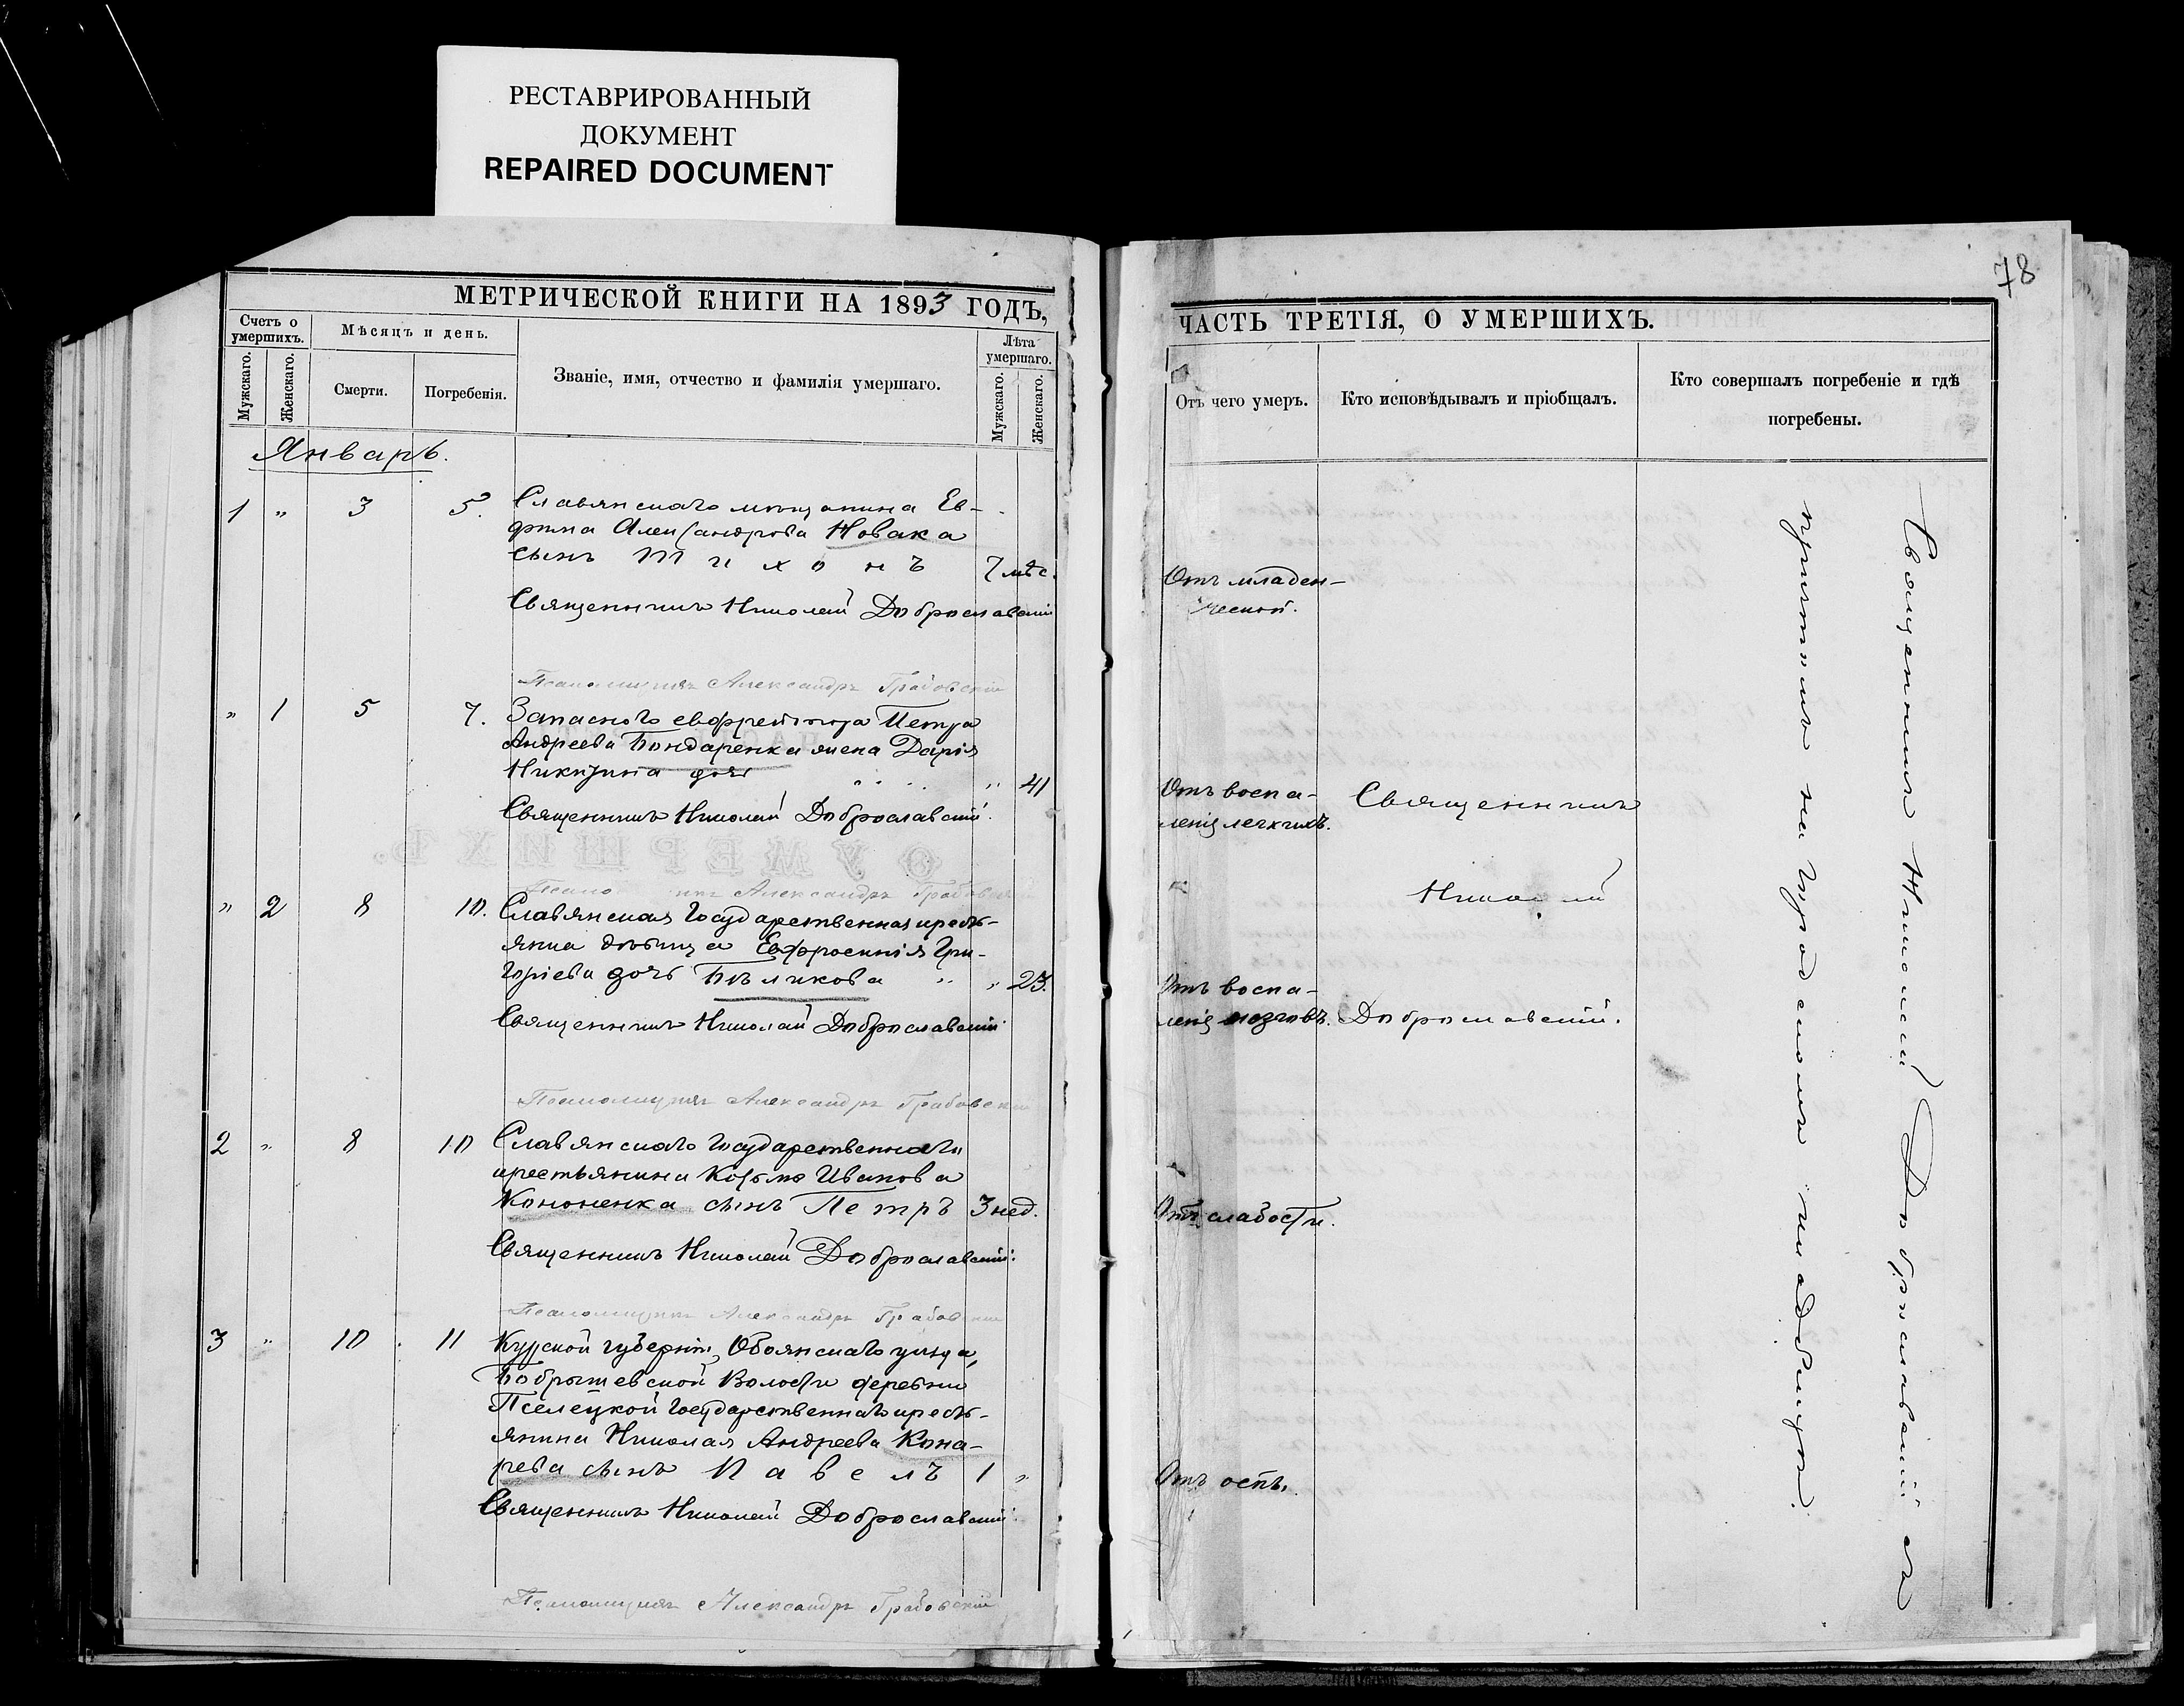 РЕСТАВРИРОВАННЫЙ
ДОКУМЕНТ
REPAIRED DOCUMENT
МЕТРИЧЕСКОЙ КНИГИ НА 1893 ГОДЪ,
Счетъ о умершихъ.
Мѣсяцъ и день.
Званіе, имя, отчество и фамилія умершаго.
Лѣта умершаго.
Мужскаго.
Женскаго.
Смерти.
Погребенія.
Мужскаго.
Женскаго.
Январь.
1 " 3 5. Славянскаго мѣщанина Ев-
фима Александрова Новака
сынъ Тихонъ 7 мѣс.
Священникъ Николай Доброславскій
Псаломщикъ Александръ Грабовскій
" 1 5 7. Запаснаго ефрейтора Петра
Андреева Бондаренка жена Дарія
Никитина дочь " 41
Священникъ Николай Доброславскій.
Александръ Грабовскій
" 2 8 10. Славянская Государственная кресть-
янка дѣвица Евфросинія Гри-
горіева дочь Бѣликова " " 23.
Священникъ Николай Доброславскій
Псаломщикъ Александръ Грабовскій
2 " 8 10 Славянскаго Государственнаго
крестьянина Козьмы Иванова
Кононенка сынъ Петръ 3 нед.
Священникъ Николай Доброславскій.
Псаломщикъ Александръ Грабовскій
3 " 10 11 Курской губерніи, Обоянскаго уѣзда,
Бобрышевской Волости деревни
Пселецкой Государственнаго кресть-
янина Николая Андреева Кона-
рева сынъ Павелъ 1 "
Священникъ Николай Доброславскій.
Псаломщикъ Александръ Грабовскій
78
ЧАСТЬ ТРЕТІЯ, О УМЕРШИХЪ.
Отъ чего умеръ.
Кто исповѣдывалъ и пріобщалъ.
Кто совершалъ погребеніе и гдѣ
погребены.
Отъ младен-
ческой.
Отъ воспа-
ленія легкихъ.
Священникъ
Николай
Отъ воспа-
ленія мозговъ.
Доброславскій.
Отъ слабости.
Отъ оспы.
Священникъ Николай Доброславскій съ
причтомъ на городскомъ кладбищѣ.